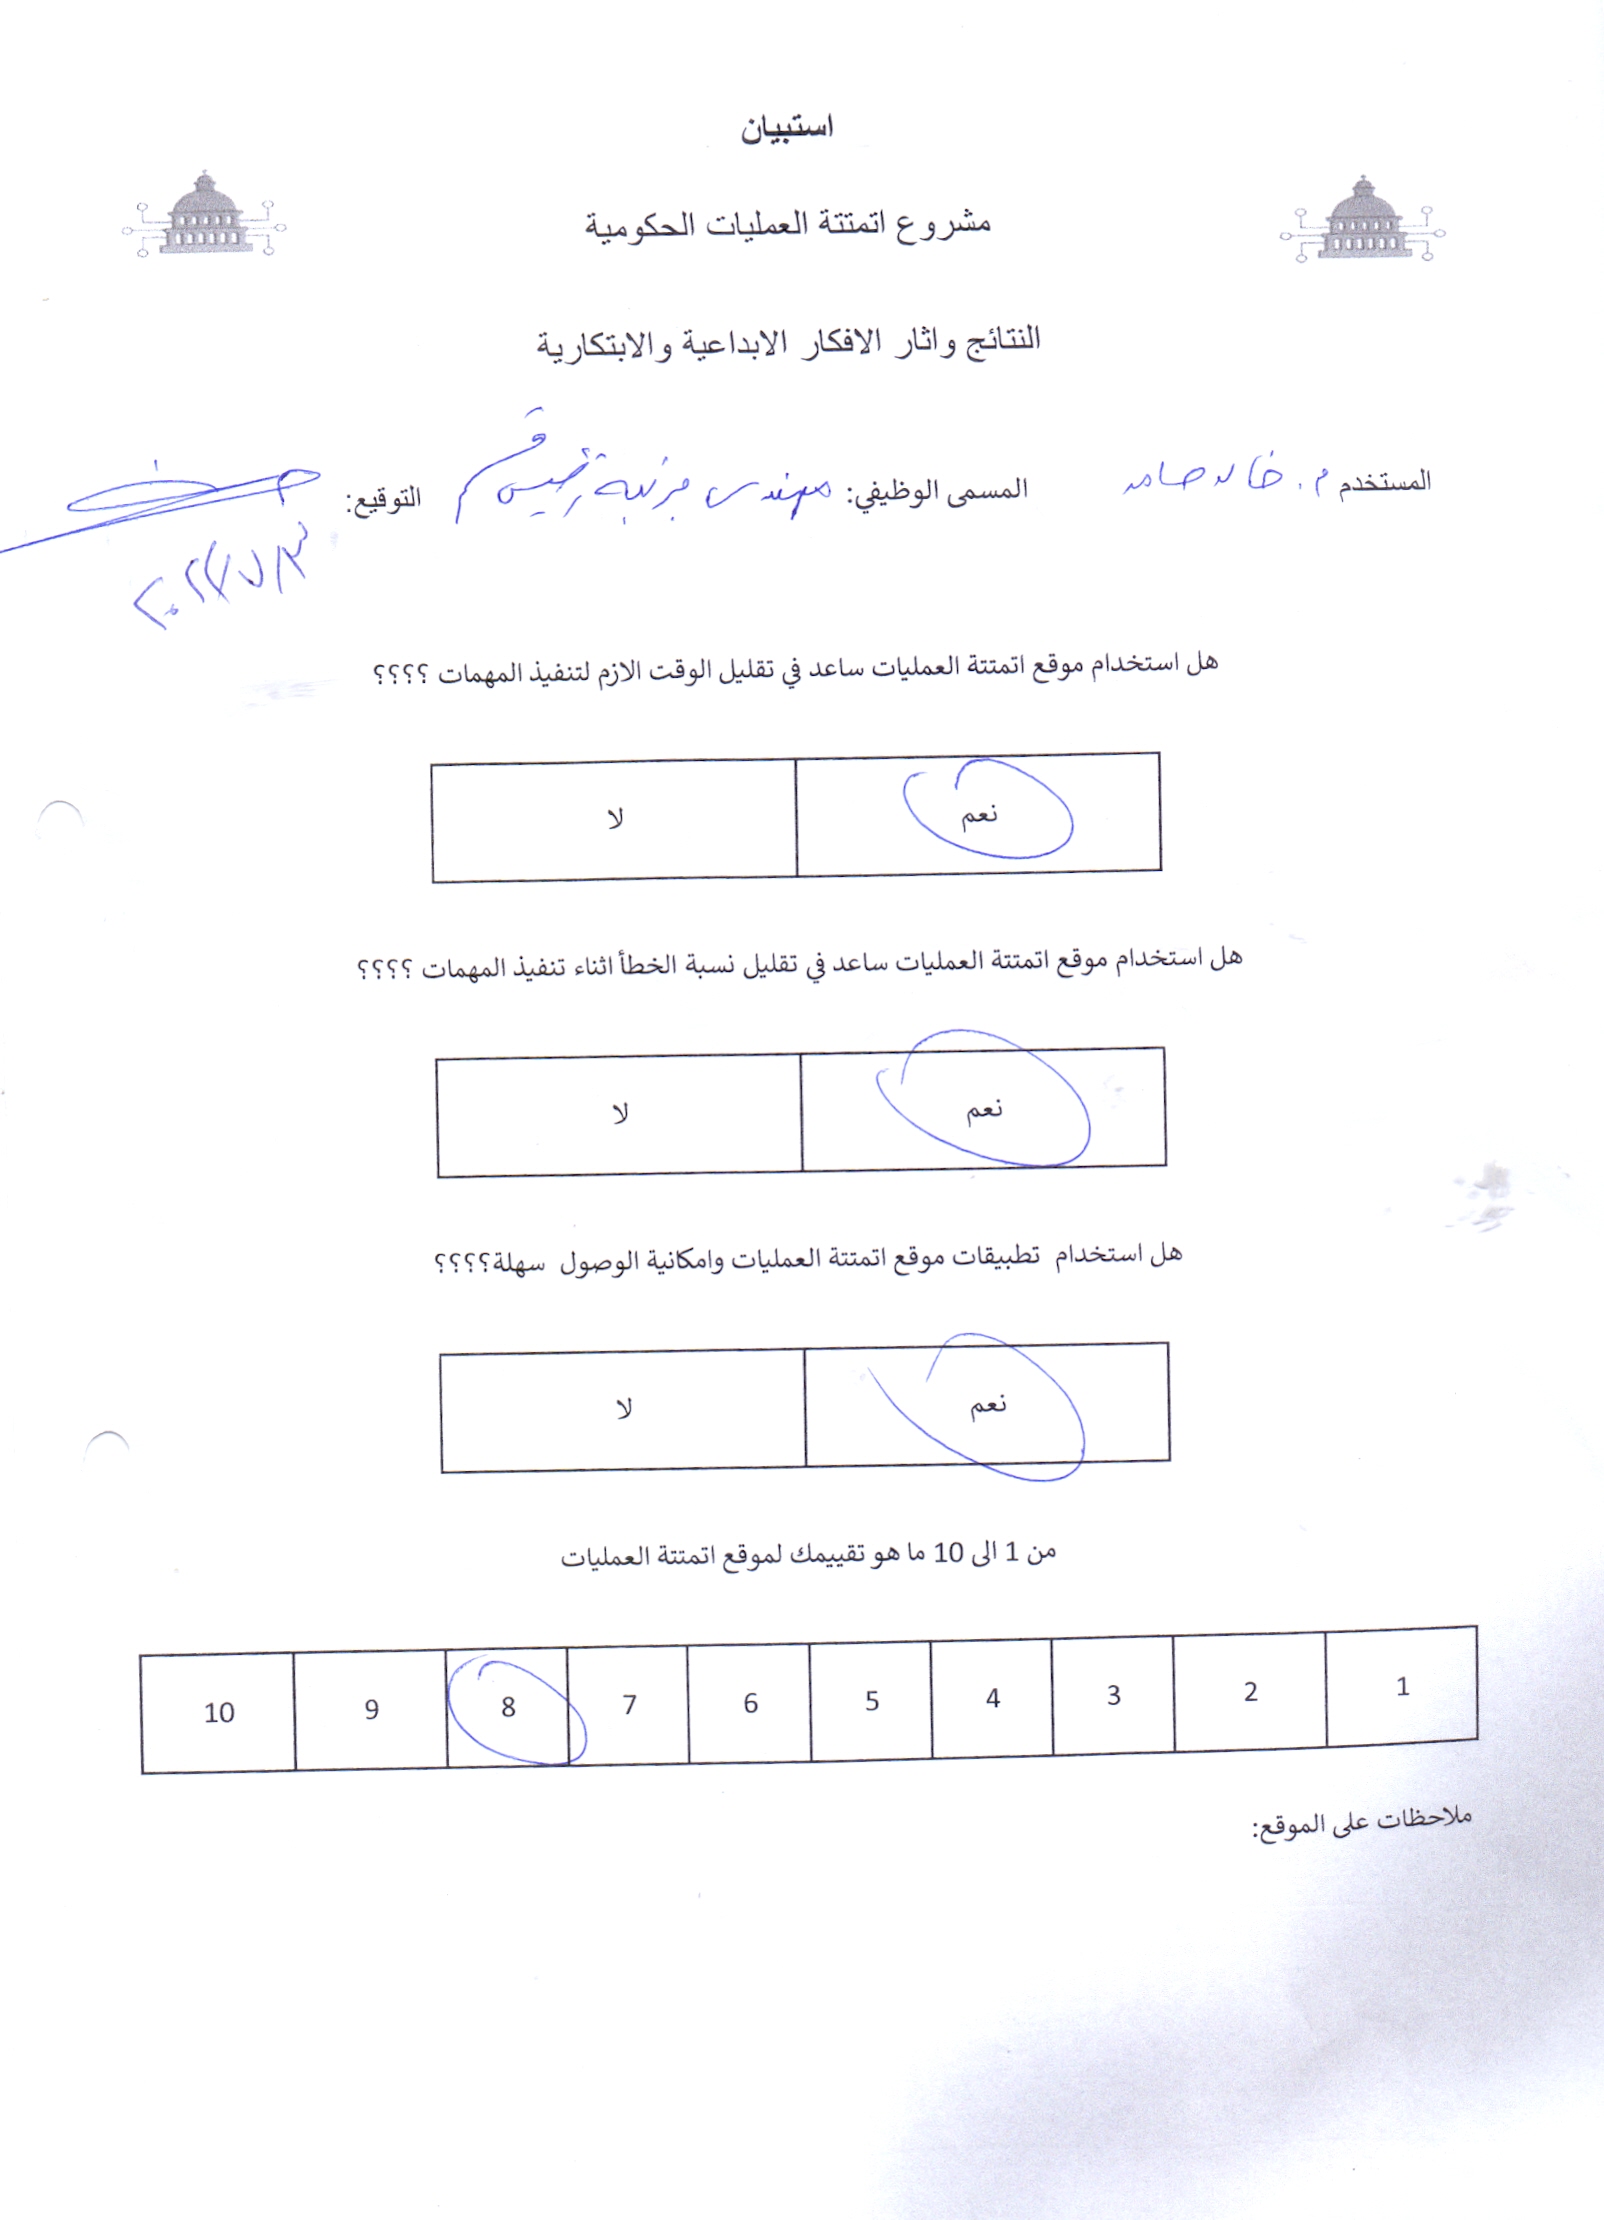 استبيان
مشروع اتمتتة العمليات الحكومية
النتائج واثار الافكار الابداعية والابتكارية
المستخدم م. خالد حامد المسمى الوظيفي: مهندس بمرتبة رئيس قسم التوقيع:
هل استخدام موقع اتمتتة العمليات ساعد في تقليل الوقت الازم لتنفيذ المهمات ؟؟؟؟
نعم لا
هل استخدام موقع اتمتتة العمليات ساعد في تقليل نسبة الخطأ اثناء تنفيذ المهمات ؟؟؟؟
نعم لا
هل استخدام تطبيقات موقع اتمتتة العمليات وامكانية الوصول سهلة؟؟؟؟
نعم لا
من 1 الى 10 ما هو تقييمك لموقع اتمتتة العمليات
1 2 3 4 5 6 7 8 9 10
ملاحظات على الموقع: